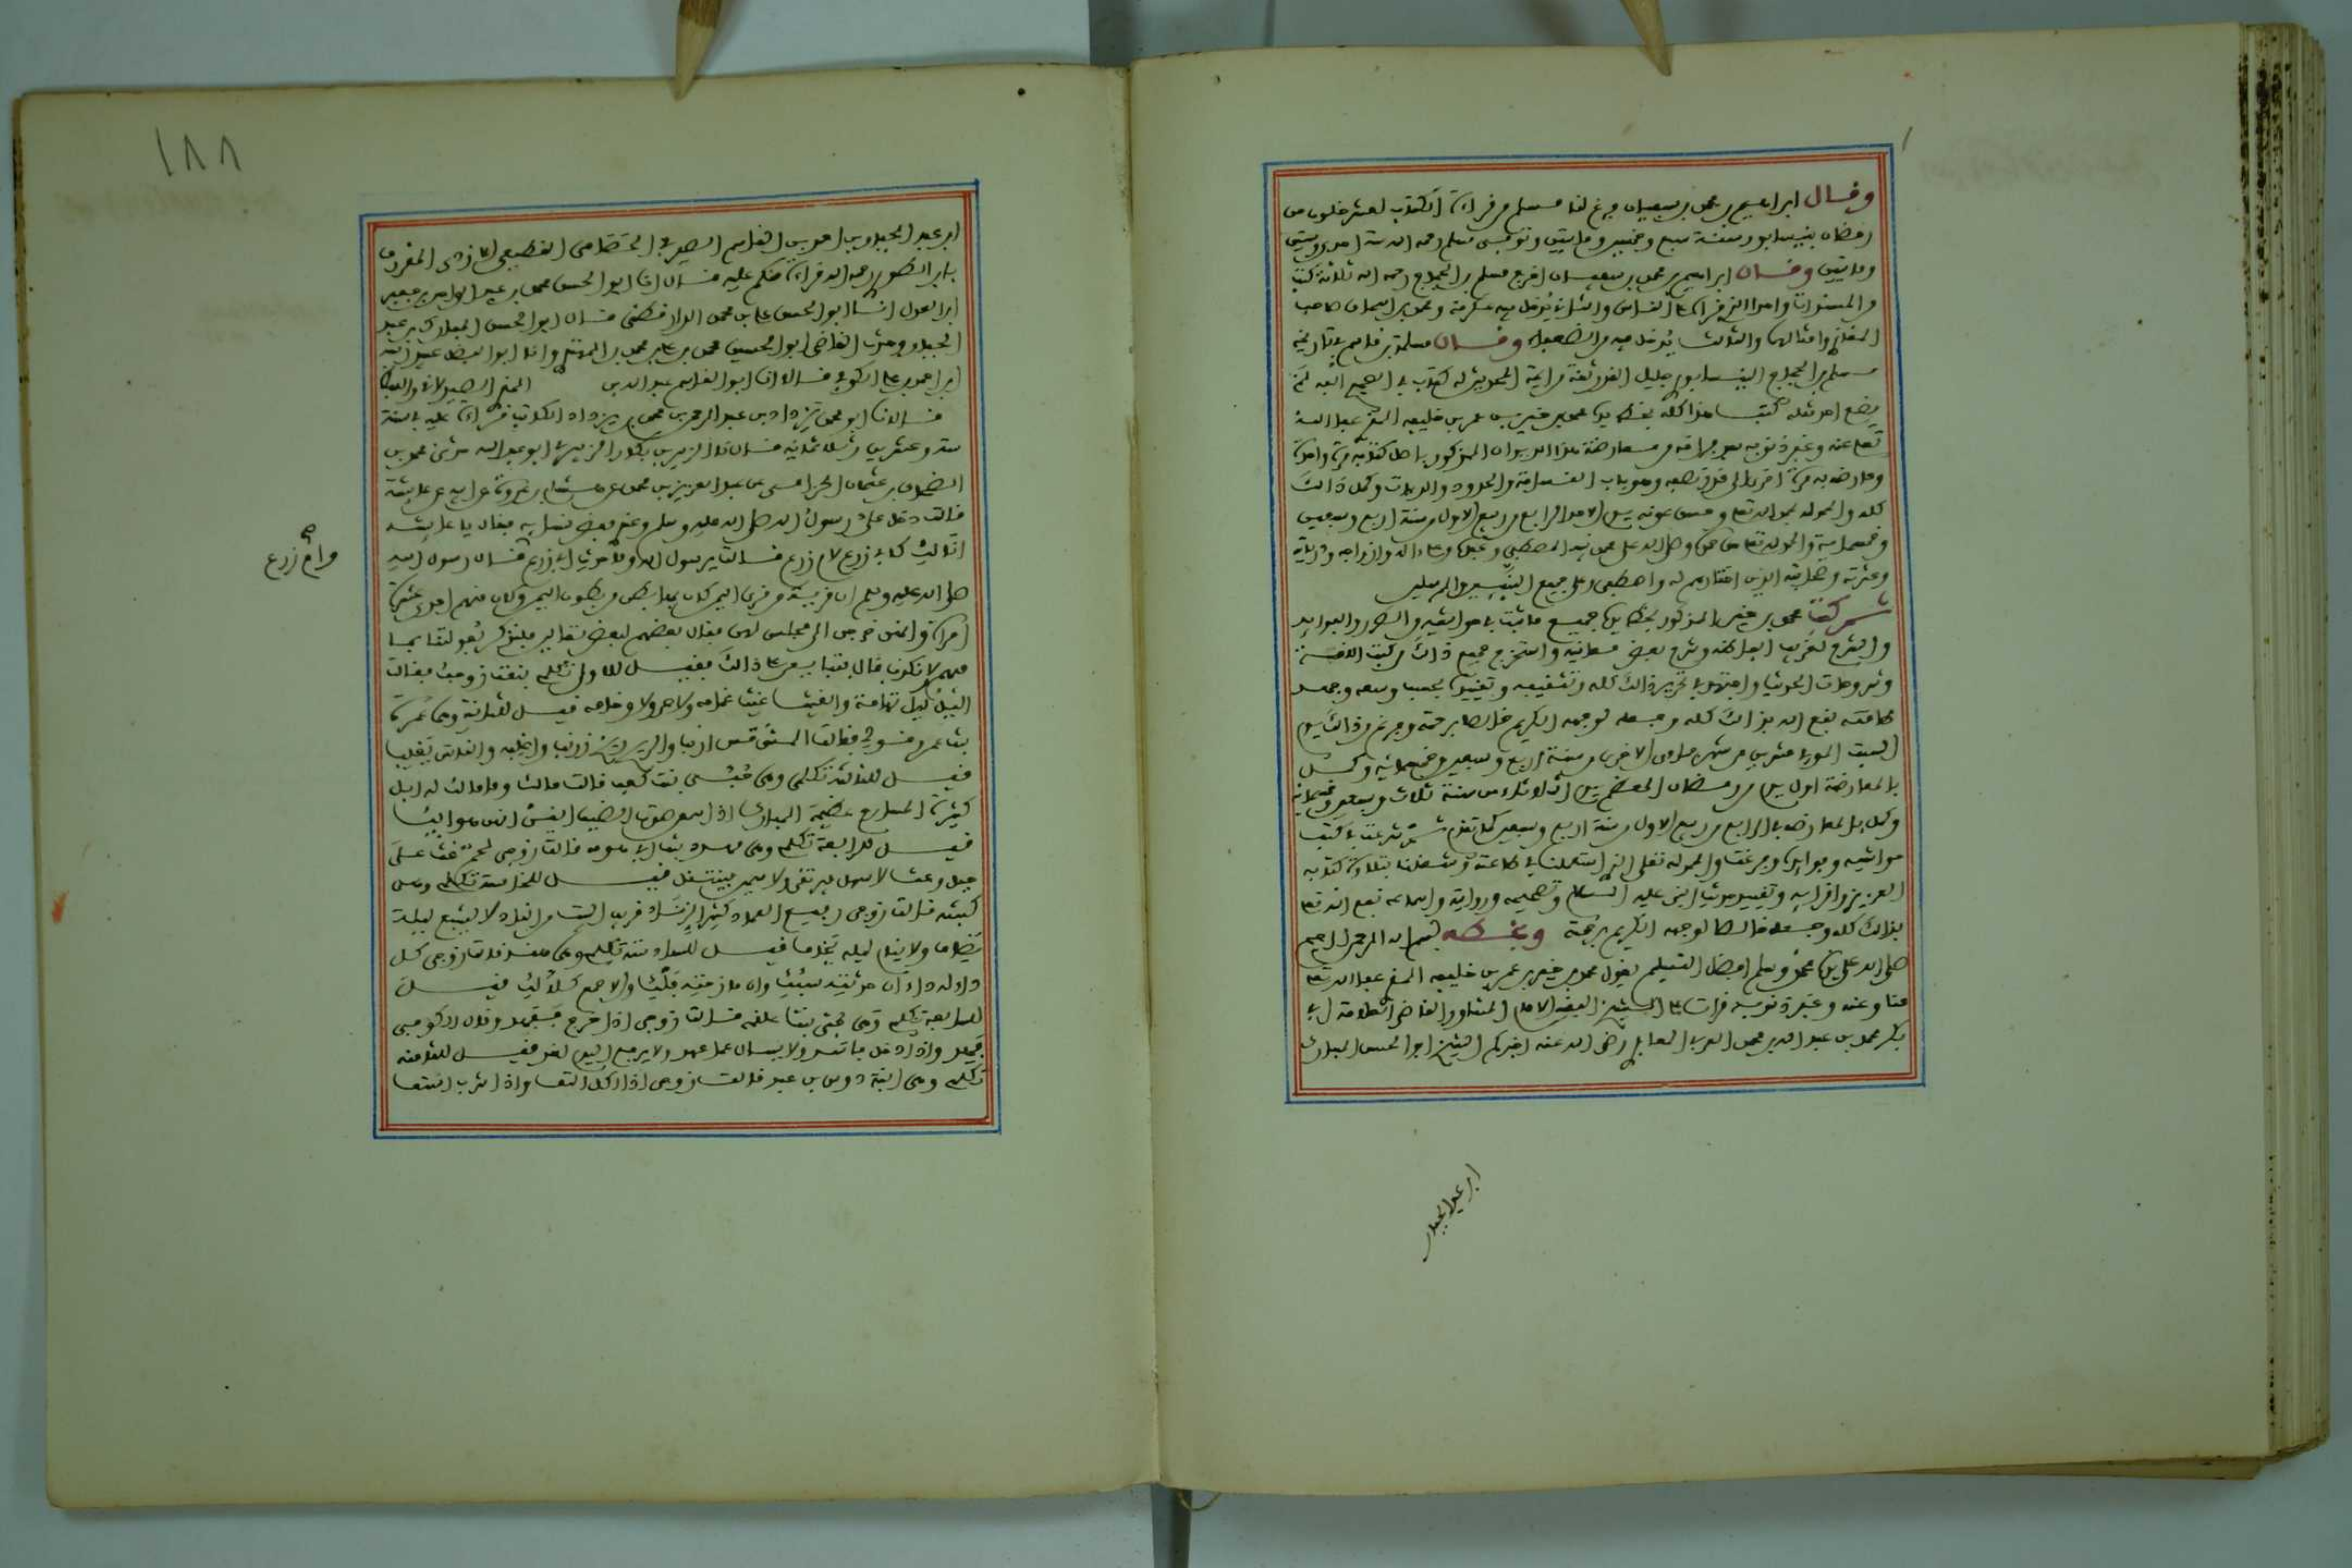 وقال ابراهيم بن محمد بن سفيان فرغ لنا مسلم من قراءة الكتاب لعشر خلون من
رمضان بنيسابور سنة سبع وخمسين ومايتين وتوفي مسلم رحمه الله سنة احدى وستين
ومايتين وقال ابراهيم بن محمد بن سفيان اخرج مسلم بن الحجاج رحمه الله ثلاثة كتب
من المسندات واحدا الذي قراه على الناس والثاني يدخل فيه عكرمة ومحمد بن اسحاق صاحب
المغازي وامثالهما والثالث يدخل فيه من الضعفاء وقال مسلمة بن قاسم في تاريخه
مسلم بن الحجاج النيسابوري جليل القدر ثقة من ايمة المحدثين له كتاب في الصحيح الفه لم
يضع احد مثله كتب هذا كله بخط يده محمد بن خير بن عمر بن خليفه المقرى عفا الله
تعلى عنه وغفر ذنوبه بعد فراغه من معارضة هذا الديوان المذكور باصل كتابه مرة واحدة
وعارضه مرة اخرى الى باب القسامة والحدود والديات وكمل ذالك
كله والحمد لله بحمد الله تعلى وحسن عونه يوم الاحد الرابع من ربيع الاول من سنة اربع وسبعين
وخمسماية والحمد لله تعلى حق حمده وصلى الله على محمد نبيه المصطفى وعبده وعلى اله وازواجه وذريته
وعترته وصحابته الذين اختارهم له واصطفى وعلى جميع النبيين والمرسلين
ثم كتب محمد بن خير المذكور بخط يده جميع ما ثبت في حواشيه والطرر والفوايد
والشرح لغريب الفاظه وشرح بعض معانيه واستخرج جميع ذالك من كتب اللغة
وشروحات الحديث واجتهد في تحرير ذالك كله وتثقيفه وتقييده بحسب وسعه وجهد
طاقته نفع الله بذالك كله وجعله لوجهه الكريم خالصا برحمته وفرغ من ذالك يوم
السبت الموفي عشرين من شهر جمادى الاخرى من سنة اربع وسبعين وخمسماية وكمل
بالمعارضة اول يوم من رمضان المعظم يوم الثلاثاء من سنة ثلاث وسبعين وخمسماية
وكمل بالمعارضة في الرابع من ربيع الاول من سنة اربع وسبعين كما تقدم ثم شرعت في كتب
حواشيه وفوايده وفرغت والحمد لله تعلى الذي استعملنا في طاعته وشغلنا بتلاوة كتابه
العزيز واقرايه وتقييد حديث النبي عليه السلام وتصحيحه وروايته واسماعه نفع الله تعلى
بذالك كله وجعله خالصا لوجهه الكريم برحمته وبخطه بسم الله الرحمن الرحيم
صلى الله على محمد وسلم افضل التسليم يقول محمد بن خير بن عمر بن خليفه المقرى عفا الله تعلى
عنا وعنه وغفر ذنوبه قرات على الشيخ الفقيه الامام المشاور القاضي العلامة ابي
بكر محمد بن عبد الله بن محمد بن العربي المعافري رضي الله عنه اخبركم الشيخ ابو الحسن المبارك
ابن عبد الجبار
١٨٨
ابن عبد الجبار بن احمد بن القاسم الصيرفي القطيعي الازدي المعروف
بابن الطيوري رحمه الله قراءة منكم عليه قال انا ابو الحسن محمد بن عبد الواحد بن جعفر
ابو الحسن علي بن محمد الدارقطني قال ابو الحسن المبارك بن عبد
الجبار وحدثنا القاضي ابو الحسين محمد بن علي بن محمد بن المهتدي وانا ابو الفضل عبيد الله
ابن احمد بن علي الكوفي قالا انا ابو القاسم عبيد الله بن المقرى الصيدلاني
قالا نا ابو محمد يزداد بن عبد الرحمن بن محمد بن يزداد الكاتب قراءة عليه في سنة
ست وعشرين وثلاثمائة قال نا الزبير بن بكار الزبيري ابو عبد الله حدثني محمد بن
الضحاك بن عثمان الحزامي عن عبد العزيز بن محمد عن هشام بن عروة عن ابيه عن عايشة
قالت دخل علي رسول الله صلى الله عليه وسلم وعندي بعض نسايه فقال يا عايشة
انا لك كابي زرع لام زرع قالت يرسول الله وما حديث ابي زرع قال رسول الله
وام زرع صح
صلى الله عليه وسلم ان قرية من قرى اليمن كان بها بطن من بطون اليمن وكان منهم احدى عشرة
امراة وانهن خرجن الى مجلس لهن فقال بعضهن لبعض تعالين فلنذكر بعولتنا بما
فيهم لا نكذب قال فتبايعن على ذالك فقيل للاولى تكلمي بنعت زوجك فقالت
الليل ليل تهامة والغيث غيث غمامه ولا حر ولا وخامه قيل للثانية وهي عمرة
بنت عمرو فقالت المس مس ارنب والريح ريح زرنب واغلبه والناس يغلب
قيل للثالثة تكلمي وهي حبى بنت كعب قالت مالك وما مالك له ابل
كثيرة المسارح عظيمة المبارك اذا سمعن صوت الضيف ايقن انهن هوالك
قيل للرابعة تكلمي وهي مهدد بنت ابي هزومه قالت زوجي لحم غث على
جبل وعث لا سهل فيرتقى ولا سمين فينتقل قيل للخامسة تكلمي وهي
كبشه قالت زوجي رفيع العماد كثير الرماد قريب البيت من الناد لا يشبع ليلة
يضاف ولا ينام ليله يخاف قيل للسادسة تكلمي وهي هند قالت زوجي كل
داء له داء ان حدثته سبك وان مازحته فلك والا جمع كلا لك قيل
للسابعة تكلمي وهي حبى بنت علقمة قالت زوجي اذا خرج
فهد واذا دخل ولا يسال عما عهد ولا يرفع اليوم لغد فقيل للثامنة
تكلمي وهي ابنة دوس بن عبد قالت زوجي اذا اكل التف واذا شرب اشتف